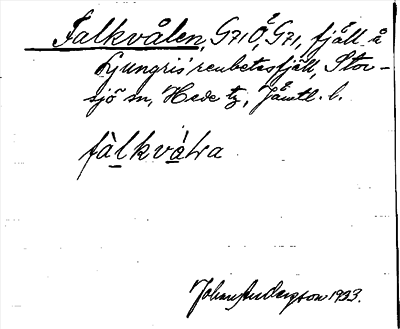 Falkvålen, G71Ö, G71, fjäll å
Ljungris' renbetesfjäll, Stor-
sjö sn, Hede tg, Jämtl. l.
fàlkvàlra
Johan Anderson 1933.